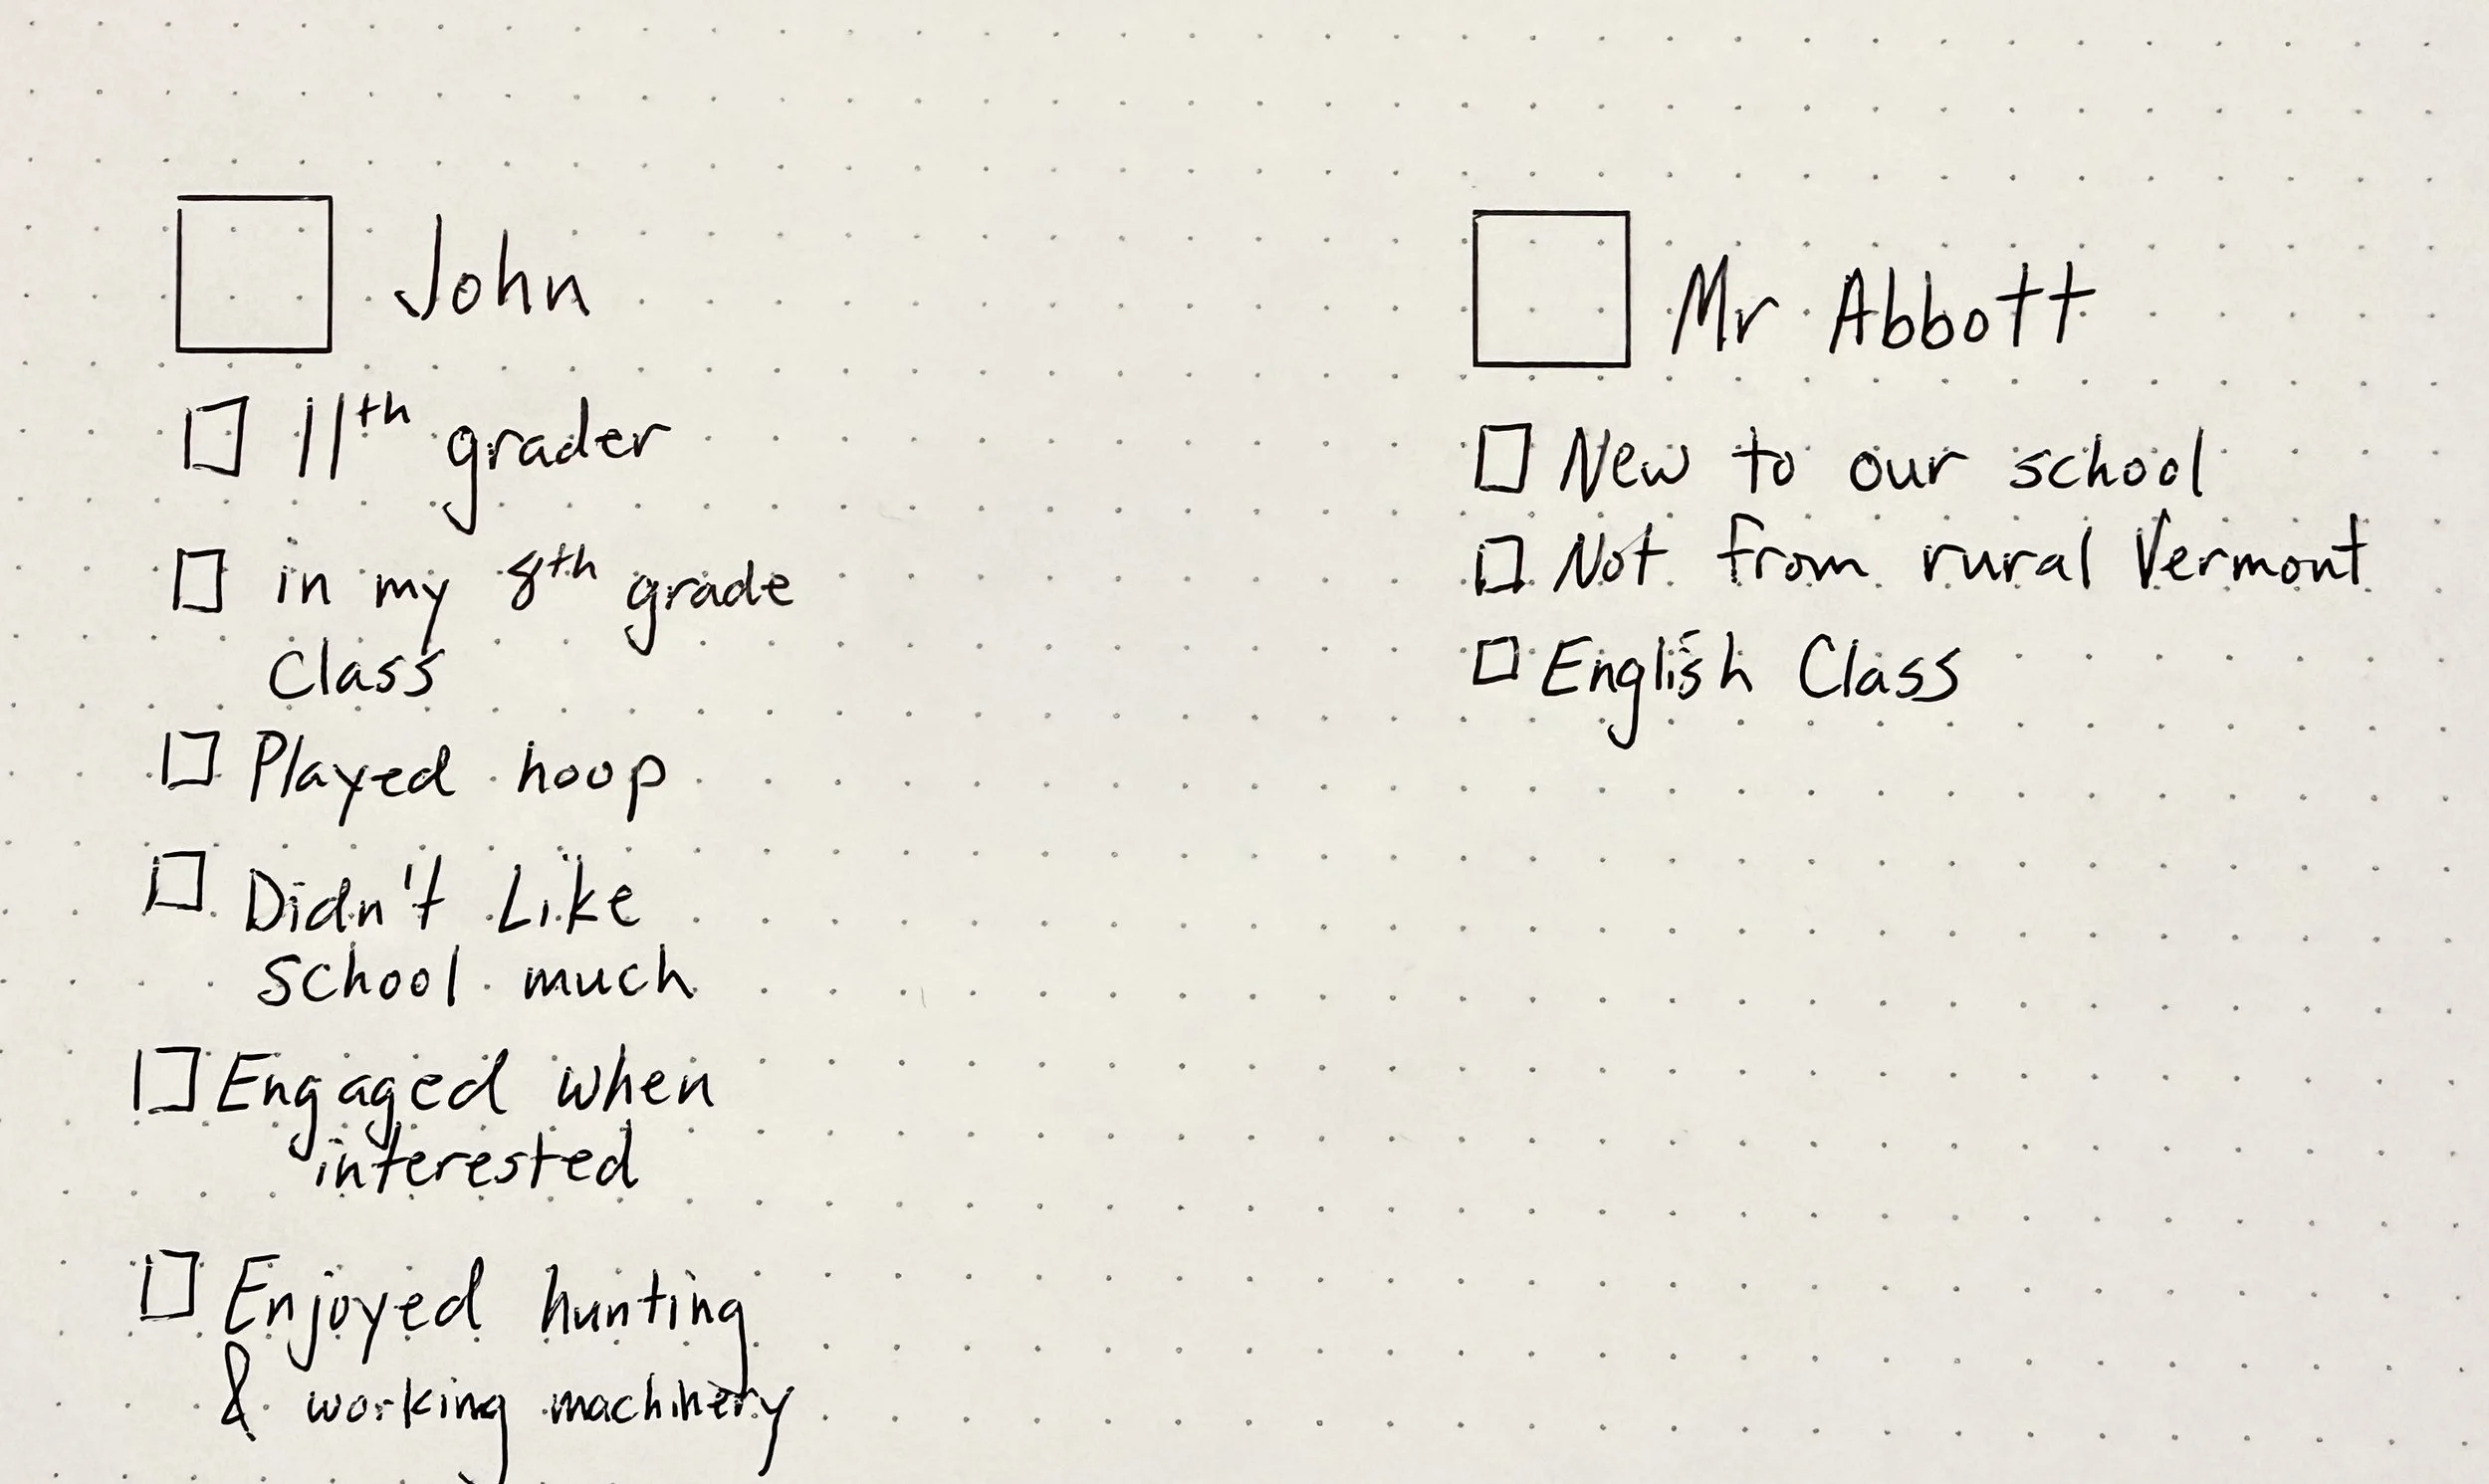 John
11th grader
in my 8th grade
Class
Played hoop
Didn't Like
school much
Engaged when
interested
Enjoyed hunting
& working machinery
Mr Abbott
New to our school
Not from rural Vermont
English Class